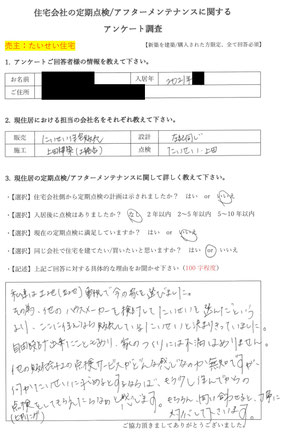 住宅会社の定期点検/アフターメンテナンスに関する
アンケート調査
売主：たいせい住宅
【新築を建築/購入された方限定、全て回答必須】
1. アンケートご回答者様の情報を教えて下さい。
お名前 入居年 2021年
ご住所
2. 現住居における担当の会社名をそれぞれ教えて下さい。
販売 たいせい住宅販売 設計 左記同じ
施工 点検 たいせい・上田
3. 現住居の定期点検/アフターメンテナンスに関して詳しく教えて下さい。
・【選択】住宅会社側から定期点検の計画は示されましたか？ はい or いいえ
・【選択】入居後に点検はありましたか？ なし 2年以内 2～5年以内 5～10年以内
・【選択】現在の定期点検に満足していますか？ はい or いいえ
・【選択】同じ会社で住宅を建てたい/買いたいと思いますか？ はい or いいえ
・【記述】上記ご回答に対する具体的な理由をお聞かせ下さい（100字程度）
私達は土地(立地)重視で今の家を選びました。
その為、他のハウスメーカーを検討してたいせいを選んだという
より、ここに住んなら販売していたたいせいと決まりきっていました。
自由設計出来たこともあり、家のつくりには不満はありません。
他の販売会社の点検サービスがどんな感じなのか無知ですが、
何かたいせいに求めるとするならば、もう少し住んでからの
点検をしてもらえたらなのと感じます。もちろん、問い合わせると、丁寧に
対応して下さいます。
ご協力頂きましてありがとうございました。